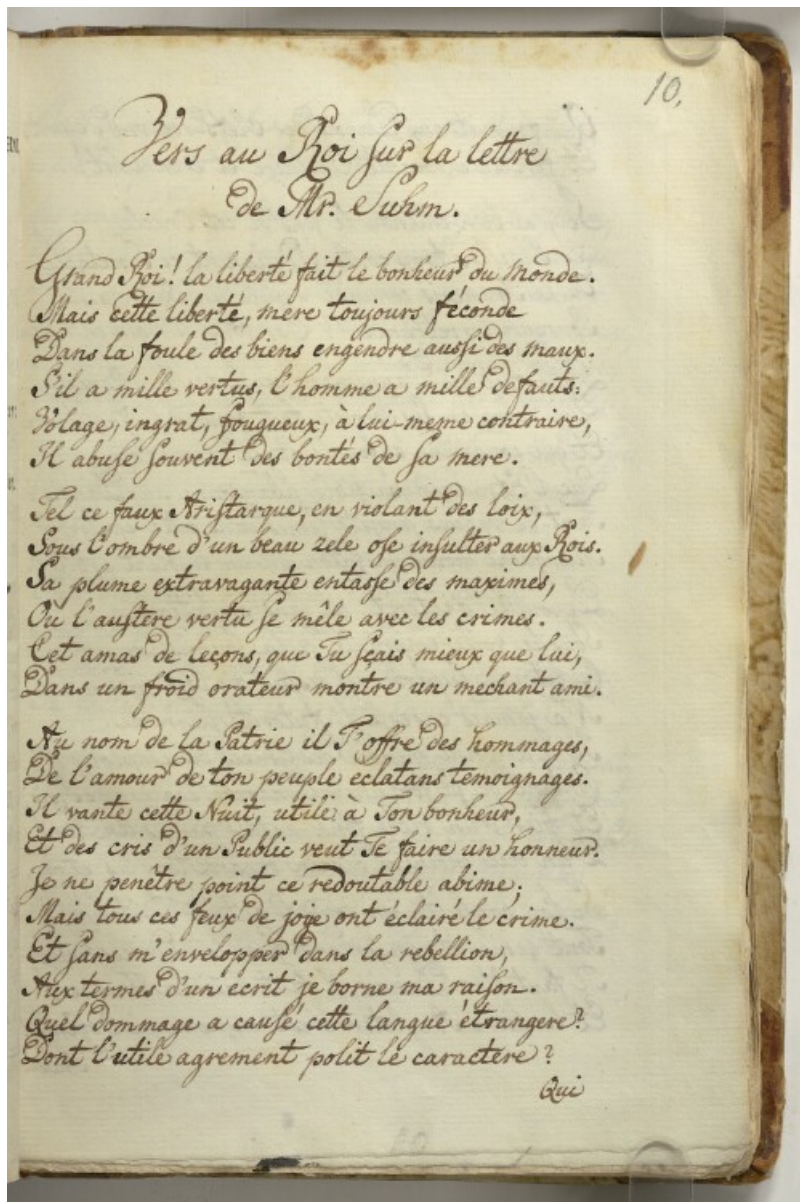 10.
Vers au Roi sur la lettre
de Mr. Suhm.
Grand Roi! la liberté fait le bonheur du monde.
Mais cette liberté, mere toujours féconde
Dans la foule des biens engendre aussi des maux.
S'il a mille vertus, l'homme a mille defauts:
Volage, ingrat, fougueux, à lui-meme contraire,
Il abuse souvent des bontés de sa mere.
Tel ce faux Aristarque, en violant des loix,
Sous l'ombre d'un beau zele ose insulter aux Rois.
Sa plume extravagante entasse des maximes,
Ou l'austere vertu se mêle avec les crimes.
Cet amas de leçons, que Tu sçais mieux que lui,
Dans un froid orateur montre un mechant ami.
Au nom de la Patrie il T'offre des hommages,
De l'amour de ton peuple eclatans temoignages.
Il vante cette Nuit, utile à Ton bonheur,
Et des cris d'un Public veut Te faire un honneur.
Je ne penêtre point ce redoutable abime;
Mais tous ces feux de joje ont éclairé le crime.
Et sans m'envelopper dans la rebellion,
Aux termes d'un ecrit je borne ma raison.
Quel dommage a causé cette langue étrangere?
Dont l'utile agrement polit le caractere?
Qui